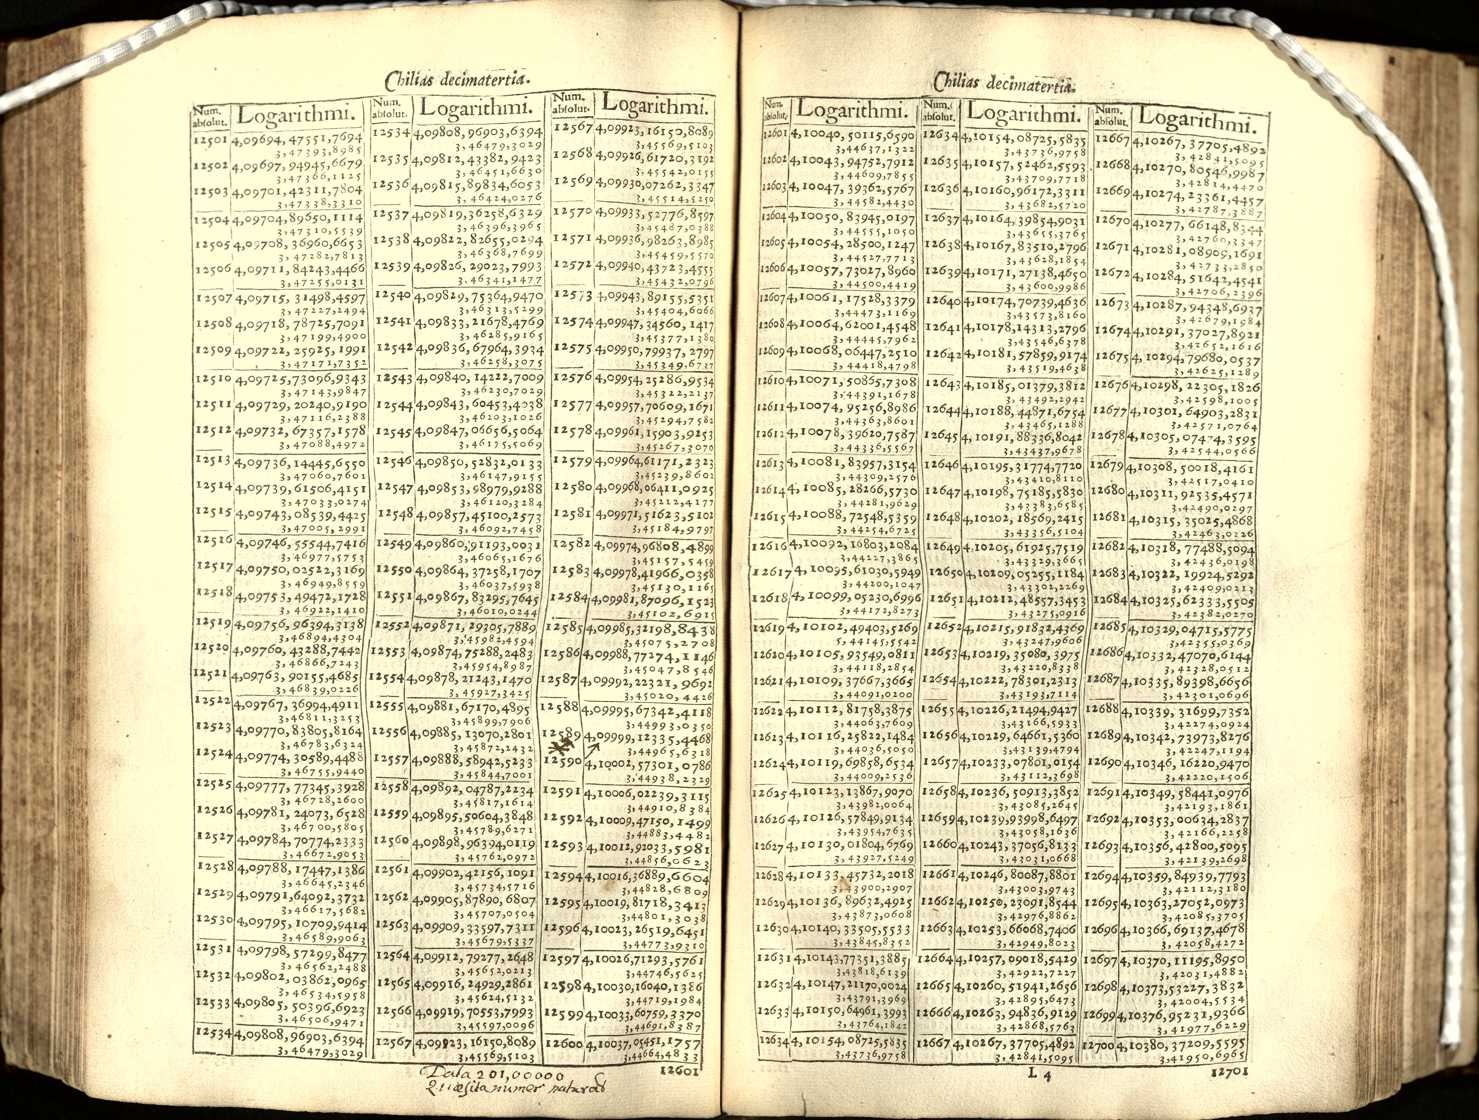 Chilias decimatertia.
Num. absolut. Logarithmi.
12501 4,09694,47551,7694
3,47393,8985
12502 4,09697,94945,6679
3,47366,1125
12503 4,09701,42311,7804
3,47338,3310
12504 4,09704,89650,1114
3,47310,5539
12505 4,09708,36960,6653
3,47282,7813
12506 4,09711,84243,4466
3,47255,0131
12507 4,09715,31498,4597
3,47227,2494
12508 4,09718,78725,7091
3,47199,4900
12509 4,09722,25925,1991
3,47171,7352
12510 4,09725,73096,9343
3,47143,9847
12511 4,09729,20240,9190
3,47116,2388
12512 4,09732,67357,1578
3,47088,4972
12513 4,09736,14445,6550
3,47060,7601
12514 4,09739,61506,4151
3,47033,0274
12515 4,09743,08539,4425
3,47005,2991
12516 4,09746,55544,7416
3,46977,5753
12517 4,09750,02522,3169
3,46949,8559
12518 4,09753,49472,1728
3,46922,1410
12519 4,09756,96394,3138
3,46894,4304
12520 4,09760,43288,7442
3,46866,7243
12521 4,09763,90155,4685
3,46839,0226
12522 4,09767,36994,4911
3,46811,3253
12523 4,09770,83805,8164
3,46783,6324
12524 4,09774,30589,4488
3,46755,9440
12525 4,09777,77345,3928
3,46728,2600
12526 4,09781,24073,6528
3,46700,5805
12527 4,09784,70774,2333
3,46672,9053
12528 4,09788,17447,1386
3,46645,2346
12529 4,09791,64092,3732
3,46617,5682
12530 4,09795,10709,9414
3,46589,9063
12531 4,09798,57299,8477
3,46562,2488
12532 4,09802,03862,0965
3,46534,5958
12533 4,09805,50396,6923
3,46506,9471
12534 4,09808,96903,6394
3,46479,3029
Num. absolut. Logarithmi.
12534 4,09808,96903,6394
3,46479,3029
12535 4,09812,43382,9423
3,46451,6630
12536 4,09815,89834,6053
3,46424,0276
12537 4,09819,36258,6329
3,46396,3965
12538 4,09822,82655,0294
3,46368,7699
12539 4,09826,29023,7993
3,46341,1477
12540 4,09829,75364,9470
3,46313,5299
12541 4,09833,21678,4769
3,46285,9165
12542 4,09836,67964,3934
3,46258,3075
12543 4,09840,14222,7009
3,46230,7029
12544 4,09843,60453,4038
3,46203,1026
12545 4,09847,06656,5064
3,46175,5069
12546 4,09850,52832,0133
3,46147,9155
12547 4,09853,98979,9288
3,46120,3284
12548 4,09857,45100,2573
3,46092,7458
12549 4,09860,91193,0031
3,46065,1676
12550 4,09864,37258,1707
3,46037,5938
12551 4,09867,83295,7645
3,46010,0244
12552 4,09871,29305,7889
3,45982,4594
12553 4,09874,75288,2483
3,45954,8987
12554 4,09878,21243,1470
3,45927,3425
12555 4,09881,67170,4895
3,45899,7906
12556 4,09885,13070,2801
3,45872,2432
12557 4,09888,58942,5233
3,45844,7001
12558 4,09892,04787,2234
3,45817,1614
12559 4,09895,50604,3848
3,45789,6271
12560 4,09898,96394,0119
3,45762,0972
12561 4,09902,42156,1091
3,45734,5716
12562 4,09905,87890,6807
3,45707,0504
12563 4,09909,33597,7311
3,45679,5337
12564 4,09912,79277,2648
3,45652,0213
12565 4,09916,24929,2861
3,45624,5132
12566 4,09919,70553,7993
3,45597,0096
12567 4,09923,16150,8089
3,45569,5103
Num. absolut. Logarithmi.
12567 4,09923,16150,8089
3,45569,5103
12568 4,09926,61720,3192
3,45542,0155
12569 4,09930,07262,3347
3,45514,5250
12570 4,09933,52776,8597
3,45487,0388
12571 4,09936,98263,8985
3,45459,5570
12572 4,09940,43723,4555
3,45432,0796
12573 4,09943,89155,5351
3,45404,6066
12574 4,09947,34560,1417
3,45377,1380
12575 4,09950,79937,2797
3,45349,6737
12576 4,09954,25286,9534
3,45322,2137
12577 4,09957,70609,1671
3,45294,7582
12578 4,09961,15903,9253
3,45267,3070
12579 4,09964,61171,2323
3,45239,8602
12580 4,09968,06411,0925
3,45212,4177
12581 4,09971,51623,5102
3,45184,9797
12582 4,09974,96808,4899
3,45157,5459
12583 4,09978,41966,0358
3,45130,1165
12584 4,09981,87096,1523
3,45102,6915
12585 4,09985,32198,8438
3,45075,2708
12586 4,09988,77274,1146
3,45047,8546
12587 4,09992,22321,9692
3,45020,4426
12588 4,09995,67342,4118
3,44993,0350
12589 4,09999,12335,4468
3,44965,6318
12590 4,10002,57301,0786
3,44938,2329
12591 4,10006,02239,3115
3,44910,8384
12592 4,10009,47150,1499
3,44883,4482
12593 4,10012,92033,5981
3,44856,0623
12594 4,10016,36889,6604
3,44828,6809
12595 4,10019,81718,3413
3,44801,3038
12596 4,10023,26519,6451
3,44773,9310
12597 4,10026,71293,5761
3,44746,5625
12598 4,10030,16040,1386
3,44719,1984
12599 4,10033,60759,3370
3,44691,8387
12600 4,10037,05451,1757
3,44664,4833
12601
Data 201,00000
Quæsita numer naturał
Chilias decimatertia.
Num. absolut. Logarithmi.
12601 4,10040,50115,6590
3,44637,1322
12602 4,10043,94752,7912
3,44609,7855
12603 4,10047,39362,5767
3,44582,4430
12604 4,10050,83945,0197
3,44555,1050
12605 4,10054,28500,1247
3,44527,7713
12606 4,10057,73027,8960
3,44500,4419
12607 4,10061,17528,3379
3,44473,1169
12608 4,10064,62001,4548
3,44445,7962
12609 4,10068,06447,2510
3,44418,4798
12610 4,10071,50865,7308
3,44391,1678
12611 4,10074,95256,8986
3,44363,8601
12612 4,10078,39620,7587
3,44336,5567
12613 4,10081,83957,3154
3,44309,2576
12614 4,10085,28266,5730
3,44281,9629
12615 4,10088,72548,5359
3,44254,6725
12616 4,10092,16803,2084
3,44227,3865
12617 4,10095,61030,5949
3,44200,1047
12618 4,10099,05230,6996
3,44172,8273
12619 4,10102,49403,5269
5,44145,5542
12620 4,10105,93549,0811
3,44118,2854
12621 4,10109,37667,3665
3,44091,0200
12622 4,10112,81758,3875
3,44063,7609
12623 4,10116,25822,1484
3,44036,5050
12624 4,10119,69858,6534
3,44009,2536
12625 4,10123,13867,9070
3,43982,0064
12626 4,10126,57849,9134
3,43954,7635
12627 4,10130,01804,6769
3,43927,5249
12628 4,10133,45732,2018
3,43900,2907
12629 4,10136,89632,4925
3,43873,0608
12630 4,10140,33505,5533
3,43845,8352
12631 4,10143,77351,3885
3,43818,6139
12632 4,10147,21170,0024
3,43791,3969
12633 4,10150,64961,3993
3,43764,1842
12634 4,10154,08725,5835
3,43736,9758
Num. absolut. Logarithmi.
12634 4,10154,08725,5835
3,43736,9758
12635 4,10157,52462,5593
3,43709,7718
12636 4,10160,96172,3311
3,43682,5720
12637 4,10164,39854,9031
3,43655,3765
12638 4,10167,83510,2796
3,43628,1854
12639 4,10171,27138,4650
3,43600,9986
12640 4,10174,70739,4636
3,43573,8160
12641 4,10178,14313,2796
3,43546,6378
12642 4,10181,57859,9174
3,43519,4638
12643 4,10185,01379,3812
3,43492,2942
12644 4,10188,44871,6754
3,43465,1288
12645 4,10191,88336,8042
3,43437,9678
12646 4,10195,31774,7720
3,43410,8110
12647 4,10198,75185,5830
3,43383,6585
12648 4,10202,18569,2415
3,43356,5104
12649 4,10205,61925,7519
3,43329,3665
12650 4,10209,05255,1184
3,43302,2269
12651 4,10212,48557,3453
3,43275,0916
12652 4,10215,91832,4369
3,43247,9606
12653 4,10219,35080,3975
3,43220,8338
12654 4,10222,78301,2313
3,43193,7114
12655 4,10226,21494,9427
3,43166,5933
12656 4,10229,64661,5360
3,43139,4794
12657 4,10233,07801,0154
3,43112,3698
12658 4,10236,50913,3852
3,43085,2645
12659 4,10239,93998,6497
3,43058,1636
12660 4,10243,37056,8133
3,43031,0668
12661 4,10246,80087,8801
3,43003,9743
12662 4,10250,23091,8544
3,42976,8862
12663 4,10253,66068,7406
3,42949,8023
12664 4,10257,09018,5429
3,42922,7227
12665 4,10260,51941,2656
3,42895,6473
12666 4,10263,94836,9129
3,42868,5763
12667 4,10267,37705,4892
3,42841,5095
Num. absolut. Logarithmi.
12667 4,10267,37705,4892
3,42841,5095
12668 4,10270,80546,9987
3,42814,4470
12669 4,10274,23361,4457
3,42787,3887
12670 4,10277,66148,8344
3,42760,3347
12671 4,10281,08909,1691
3,42733,2850
12672 4,10284,51642,4541
3,42706,2396
12673 4,10287,94348,6937
3,42679,1984
12674 4,10291,37027,8921
3,42652,1616
12675 4,10294,79680,0537
3,42625,1289
12676 4,10298,22305,1826
3,42598,1005
12677 4,10301,64903,2831
3,42571,0764
12678 4,10305,07474,3595
3,42544,0566
12679 4,10308,50018,4161
3,42517,0410
12680 4,10311,92535,4571
3,42490,0297
12681 4,10315,35025,4868
3,42463,0226
12682 4,10318,77488,5094
3,42436,0198
12683 4,10322,19924,5292
3,42409,0213
12684 4,10325,62333,5505
3,42382,0270
12685 4,10329,04715,5775
3,42355,0369
12686 4,10332,47070,6144
3,42328,0512
12687 4,10335,89398,6656
3,42301,0696
12688 4,10339,31699,7352
3,42274,0924
12689 4,10342,73973,8276
3,42247,1194
12690 4,10346,16220,9470
3,42220,1506
12691 4,10349,58441,0976
3,42193,1861
12692 4,10353,00634,2837
3,42166,2258
12693 4,10356,42800,5095
3,42139,2698
12694 4,10359,84939,7793
3,42112,3180
12695 4,10363,27052,0973
3,42085,3705
12696 4,10366,69137,4678
3,42058,4272
12697 4,10370,11195,8950
3,42031,4882
12698 4,10373,53227,3832
3,42004,5534
12699 4,10376,95231,9366
3,41977,6229
12700 4,10380,37209,5595
3,41950,6965
L 4
12701